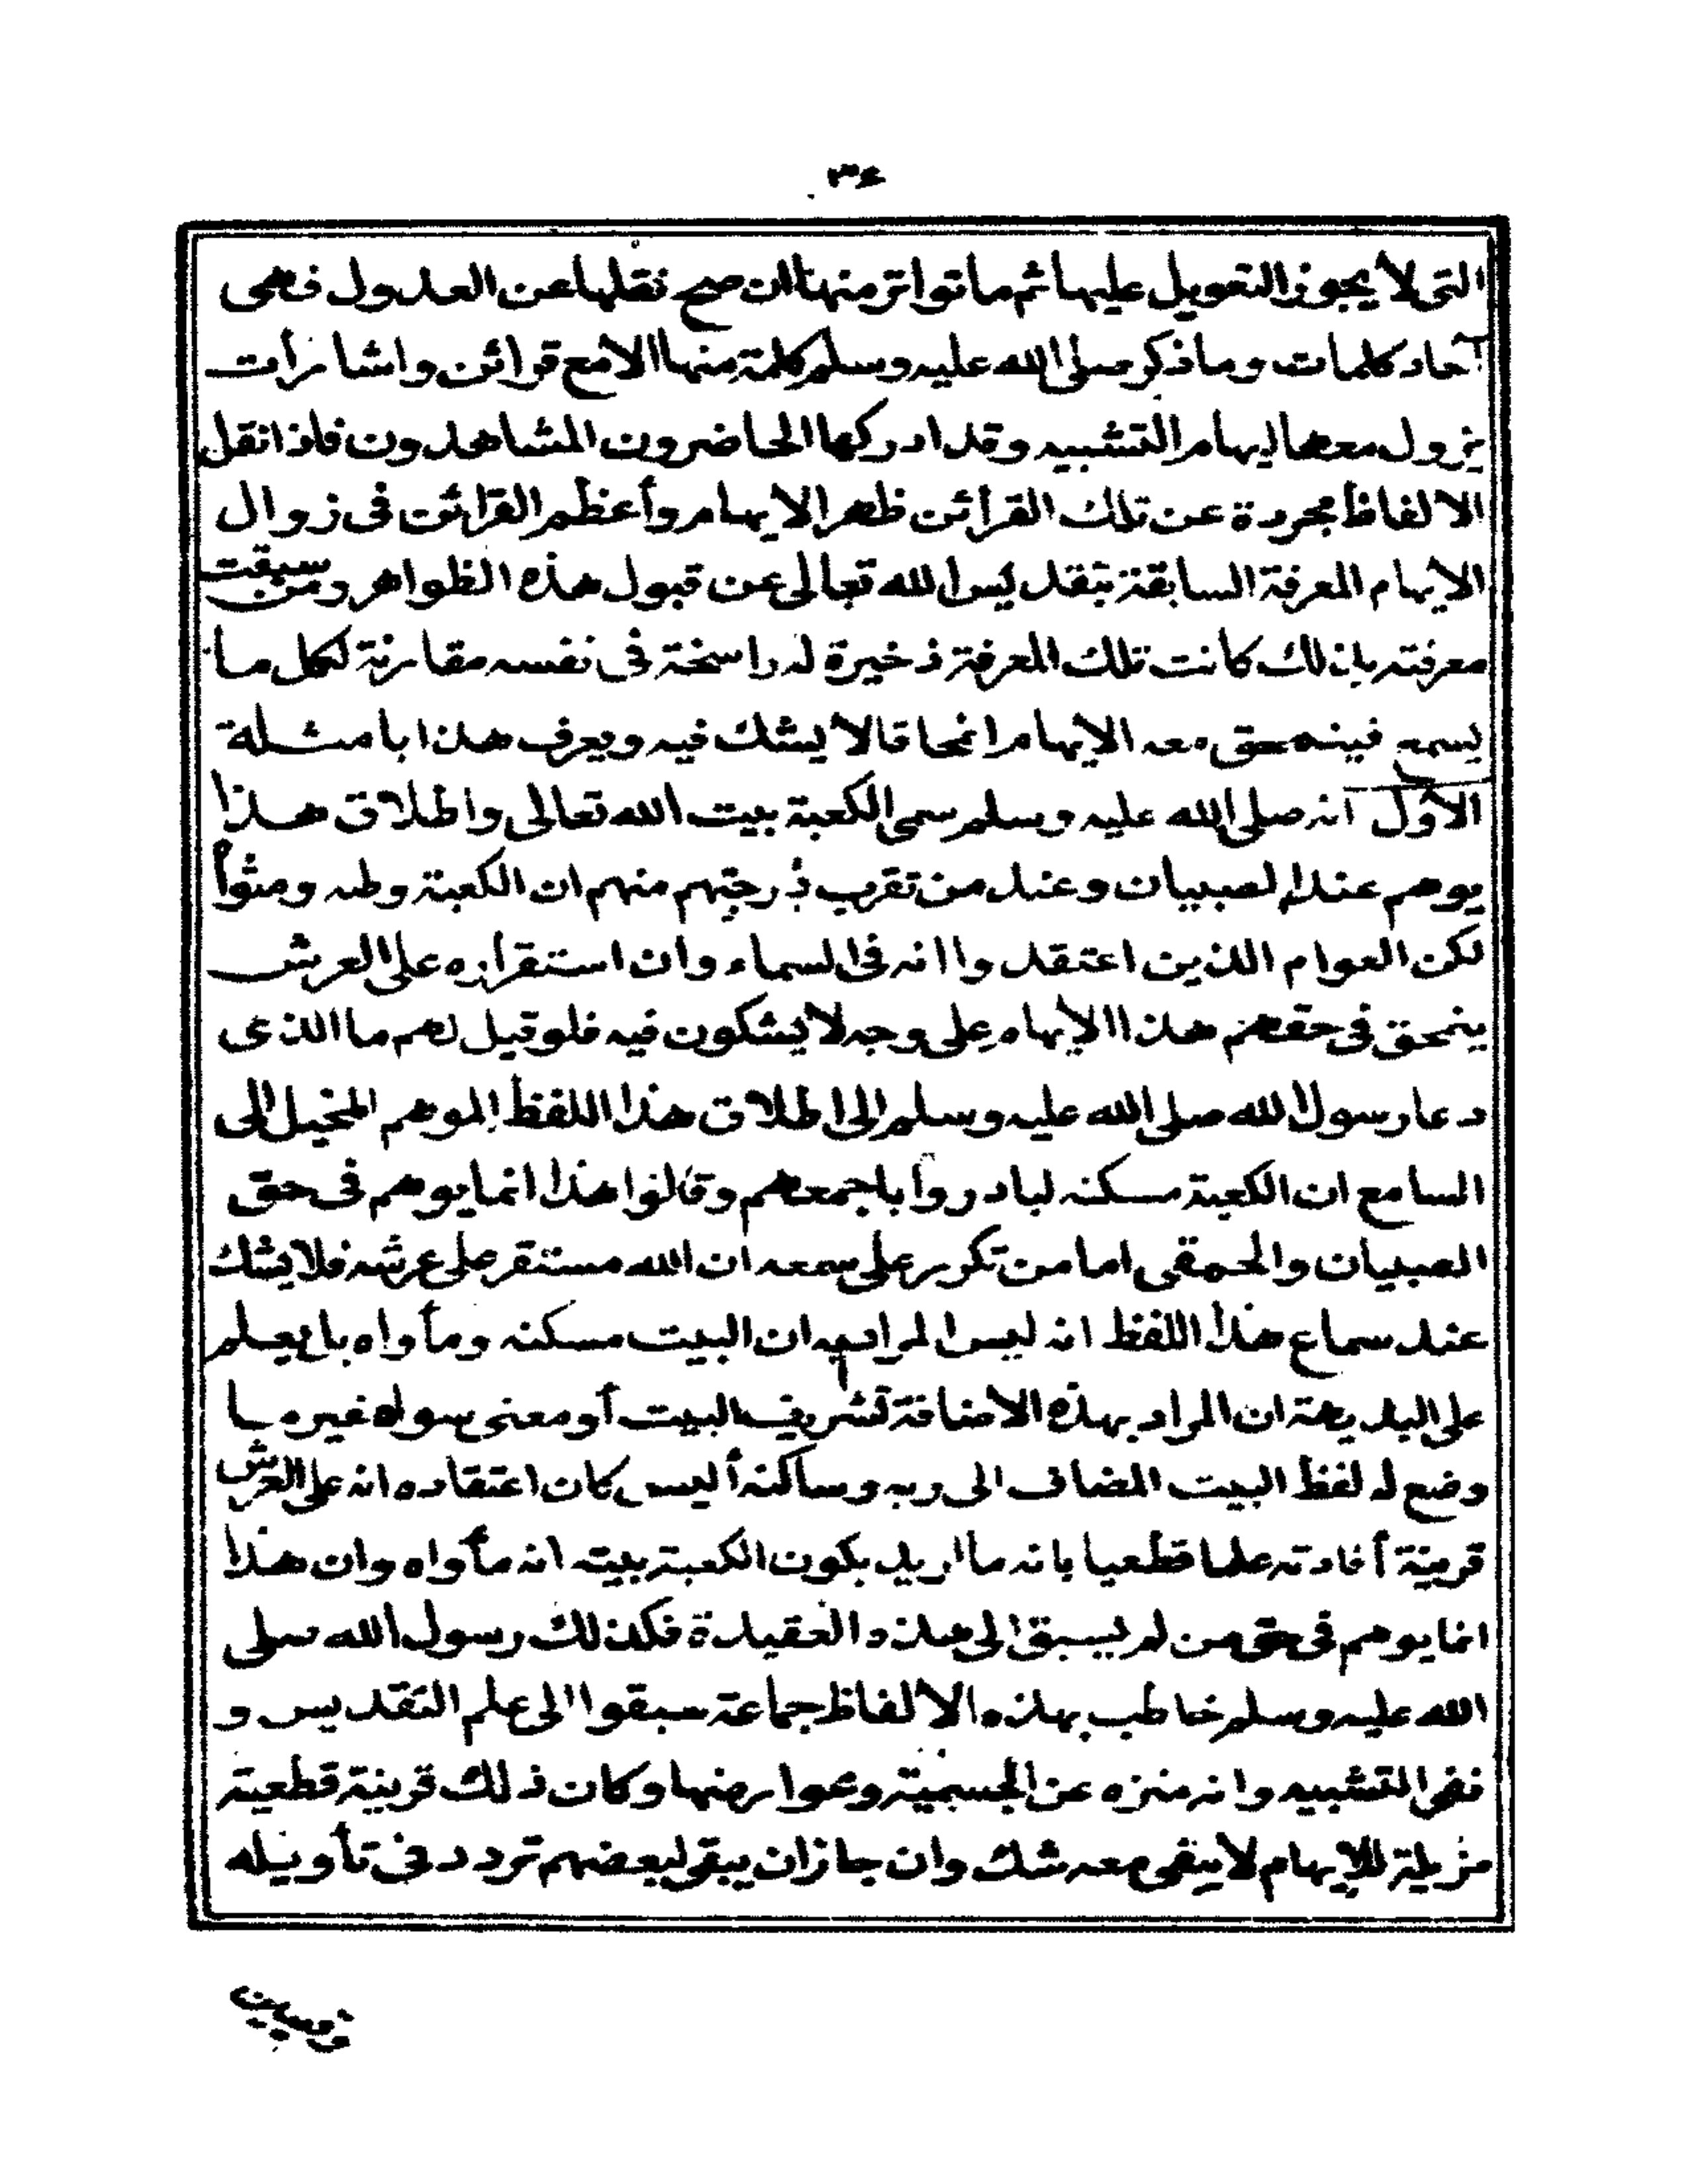 ٣٤
التى لا يجوز التعويل عليها ثم ما تواتر منها ان صح نقلها عن العدول فهى
آحاد كلمات وما ذكر صلى الله عليه وسلم كلمة منها الا مع قرائن واشارات
يزول معها ايهام التشبيه وقد ادركها الحاضرون المشاهدون فاذا نقل
الالفاظ مجردة عن تلك القرائن ظهر الايهام وأعظم القرائن فى زوال
الايهام المعرفة السابقة بتقديس الله تعالى عن قبول هذه الظواهر ومن سبقت
معرفته بذلك كانت تلك المعرفة ذخيرة له راسخة فى نفسه مقارنة لكل ما
يسمع فينمحق معه الايهام انمحاقا لا يشك فيه ويعرف هذا بامثلة
الاول انه صلى الله عليه وسلم سمى الكعبة بيت الله تعالى واطلاق هذا
يوهم عند الصبيان وعند من تقرب درجتهم منهم ان الكعبة وطنه ومثواه
لكن العوام الذين اعتقدوا انه فى السماء وان استقراره على العرش
ينمحق فى حقهم هذا الايهام على وجه لا يشكون فيه فلو قيل لهم ما الذى
دعا رسول الله صلى الله عليه وسلم الى اطلاق هذا اللفظ الموهم المخيل الى
السامع ان الكعبة مسكنه لبادروا باجمعهم وقالوا هذا انما يوهم فى حق
الصبيان والحمقى اما من تكرر على سمعه ان الله مستقر على عرشه فلا يشك
عند سماع هذا اللفظ انه ليس المراد به ان البيت مسكنه ومأواه بل يعلم
على البديهة ان المراد بهذه الاضافة تشريف البيت أو معنى سواه غير ما
وضع له لفظ البيت المضاف الى ربه وساكنه أليس كان اعتقاده انه على العرش
قرينة أفادته علما قطعيا بانه ما اريد بكون الكعبة بيته انه مأواه وان هذا
انما يوهم فى حق من لم يسبق الى هذه العقيدة فكذلك رسول الله صلى
الله عليه وسلم خاطب بهذه الالفاظ جماعة سبقوا الى علم التقديس و
نفى التشبيه وانه منزه عن الجسمية وعوارضها وكان ذلك قرينة قطعية
مزيلة للايهام لا يبقى معه شك وان جاز ان يبقى لبعضهم تردد فى تأويله